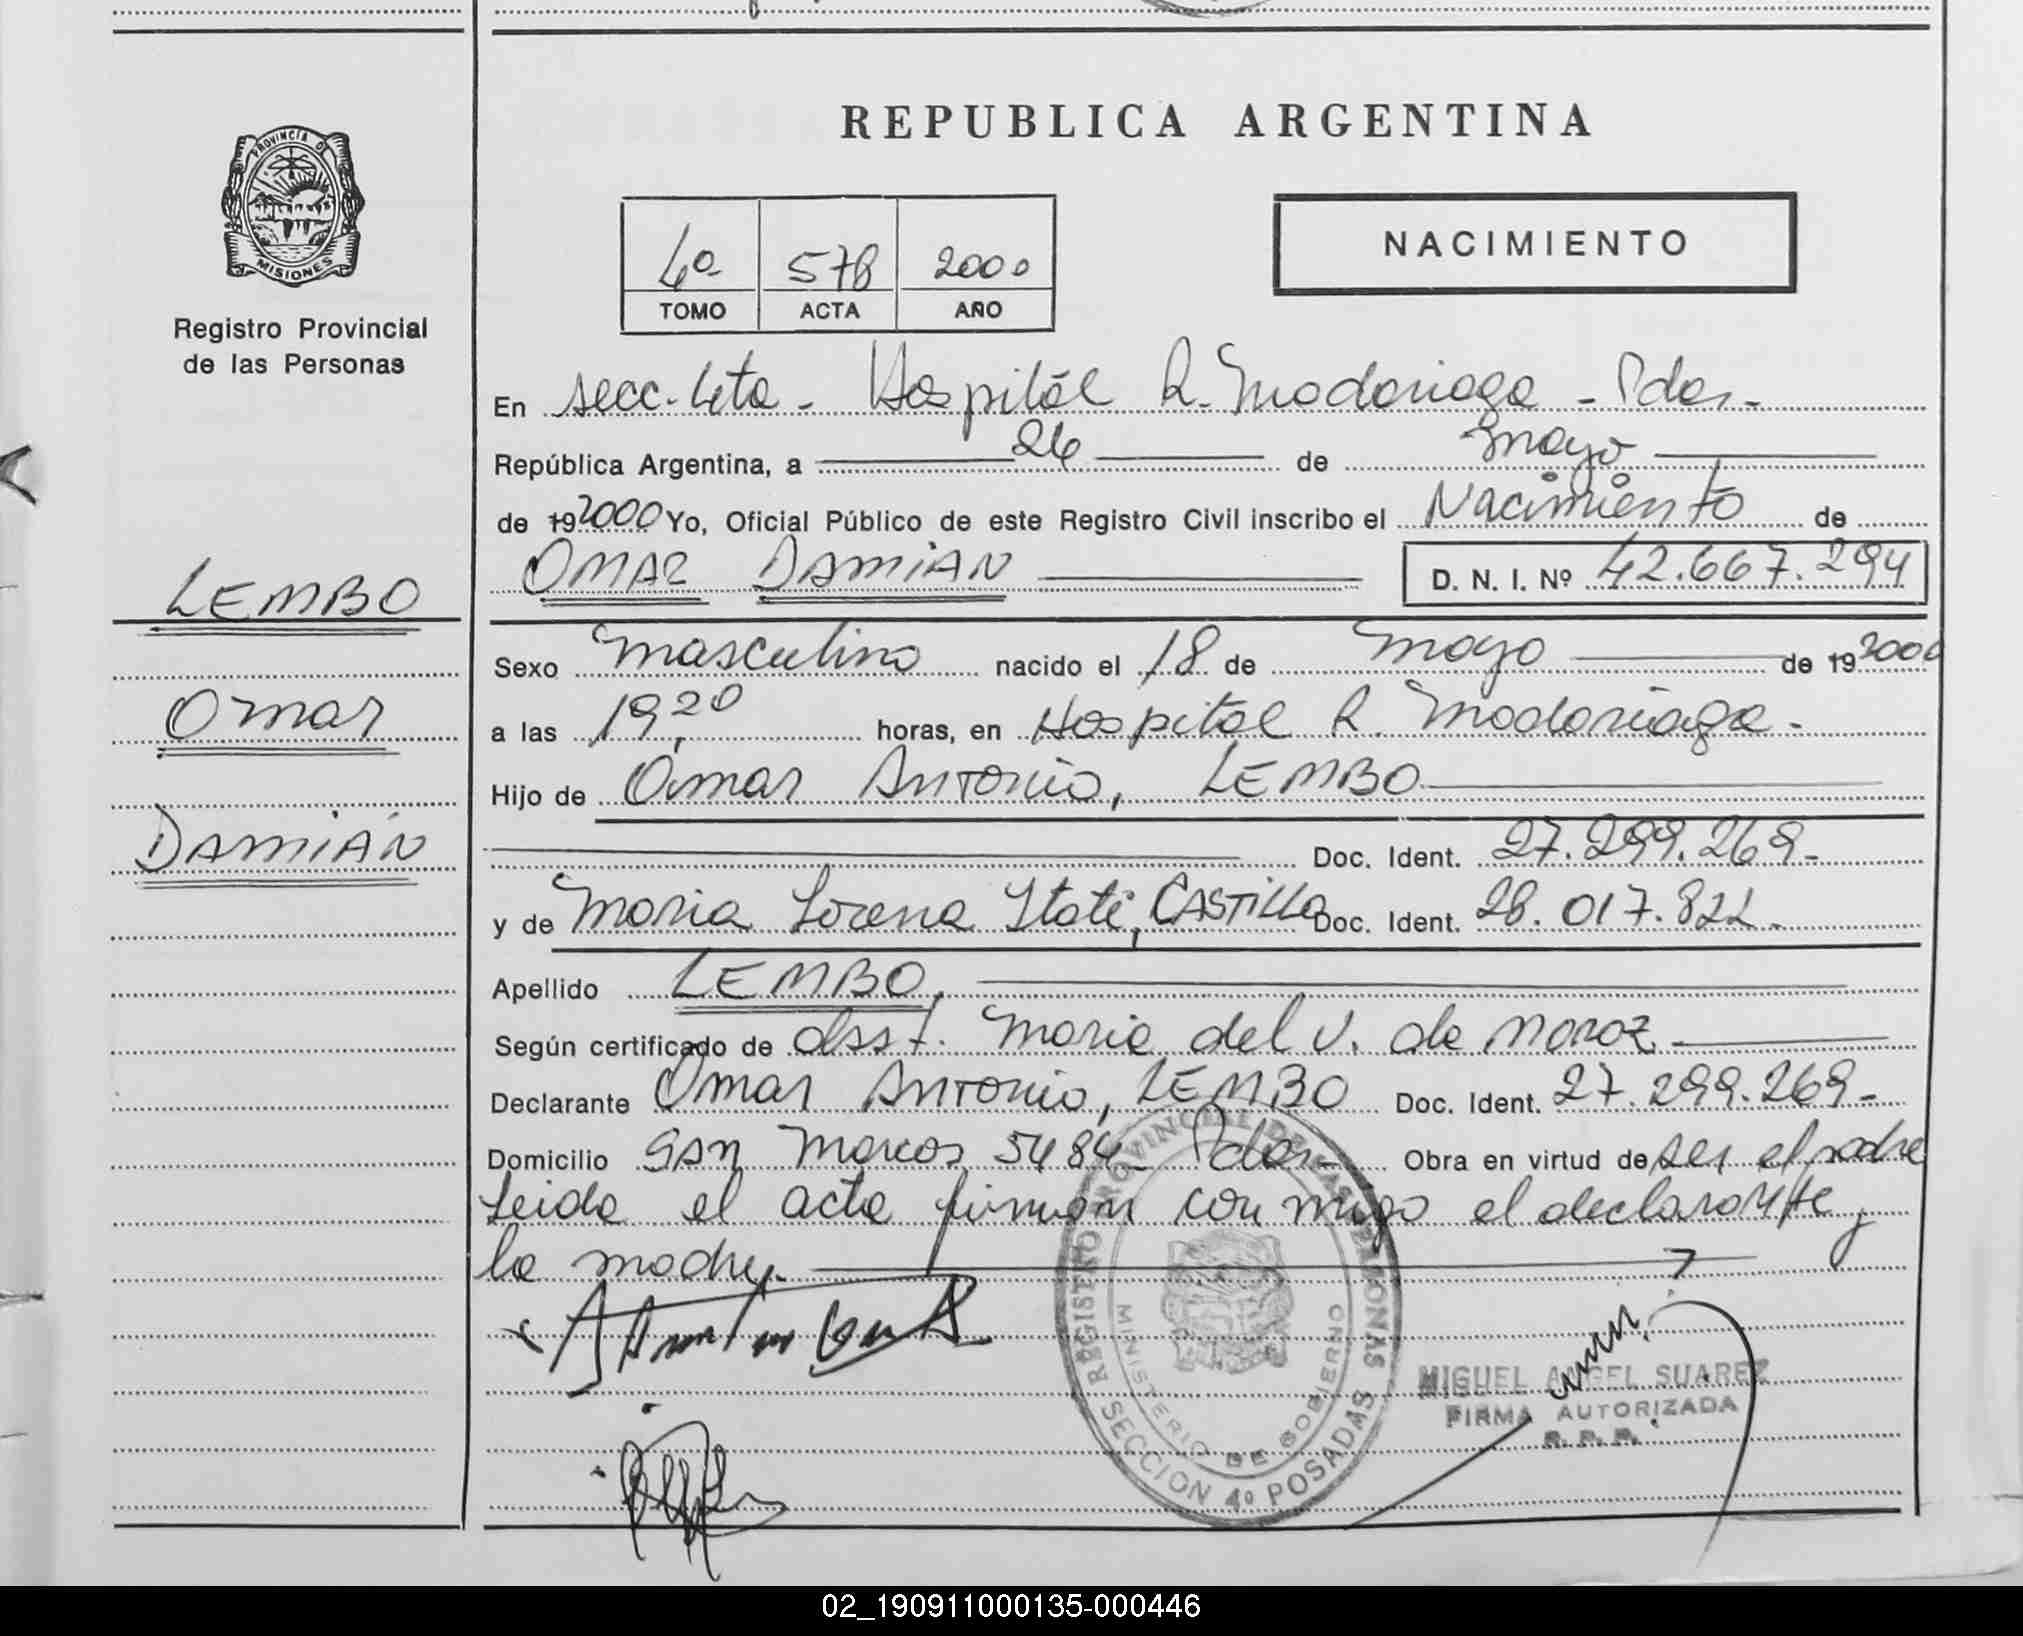 PROVINCIA DE
MISIONES
Registro Provincial
de las Personas
LEMBO
Omar
DAMIÁN
REPUBLICA ARGENTINA
4º 578 2000
TOMO ACTA AÑO
NACIMIENTO
En secc. 4ta - Hospital R. Madariaga - Pdas.-
República Argentina, a 26 de mayo
de 192000 Yo, Oficial Público de este Registro Civil inscribo el Nacimiento de
OMAR DAMIAN D. N. I. Nº 42.667.294
Sexo masculino nacido el 18 de mayo de 192000
a las 19,20 horas, en Hospital R. Madariaga -
Hijo de Omar Antonio, LEMBO
Doc. Ident. 27.299.269-
y de Maria Lorena Itati, CASTILLO Doc. Ident. 28.017.822.
Apellido LEMBO,
Según certificado de obsst. Maria del V. de Moroz
Declarante Omar Antonio, LEMBO Doc. Ident. 27.299.269-
Domicilio San Marcos 5484 - Pdas- Obra en virtud de ser el padre
Leida el acta firman con migo el declarante y
la madre.-
REGISTRO PROVINCIAL DE LAS PERSONAS
MINISTERIO DE GOBIERNO
SECCION 4º POSADAS
MIGUEL ANGEL SUAREZ
FIRMA AUTORIZADA
R. P. P.
02_190911000135-000446